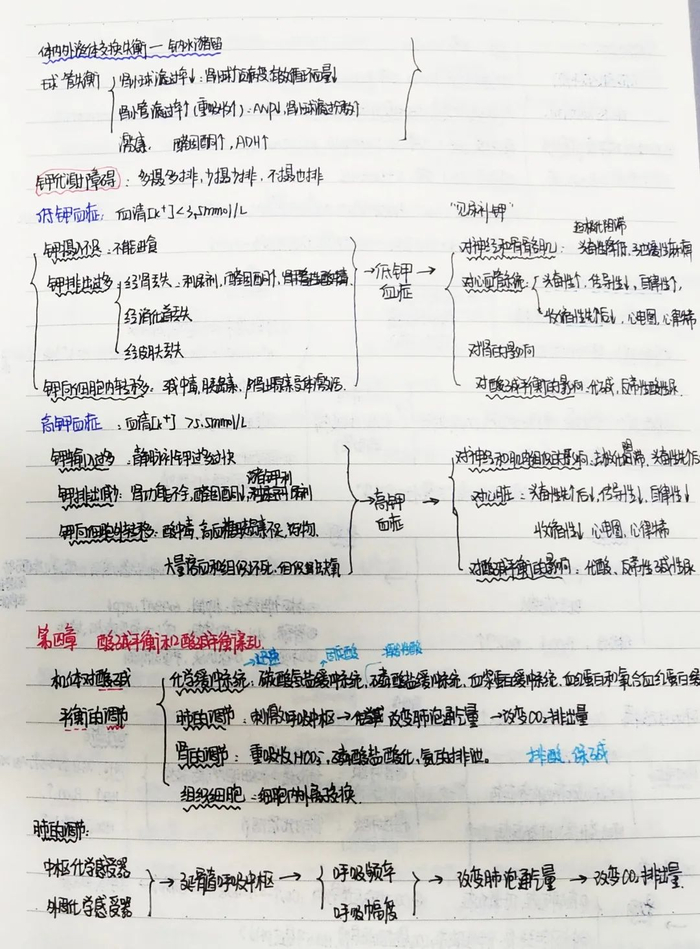 体内外液体交换失衡 — 钠水潴留
球-管失衡 肾小球滤过率↓：肾小球广泛病变、有效循环血量↓
肾小管 (重吸收↑)：ANP↓，肾小球滤过分数↑
醛固酮↑，ADH↑
钾代谢障碍：多摄多排，少摄少排，不摄也排
低钾血症：血清[K⁺]<3.5mmol/L “见尿补钾”
钾摄入不足：不能进食
钾排出过多 经肾丢失：利尿剂，醛固酮↑，肾小管性酸中毒
经消化道丢失
经皮肤丢失
钾向细胞内转移：碱中毒，胰岛素
→低钾血症→
对神经和骨骼肌：超极化阻滞 兴奋性降低
对心血管系统：兴奋性↑，传导性↓，自律性↑，
收缩性先↑后↓，心电图，心律失常
对肾的影响
对酸碱平衡的影响：代碱，反常性酸性尿
高钾血症：血清[K⁺] >5.5mmol/L
钾输入过多：静脉补钾过多过快
钾排出减少：肾功能不全，醛固酮↓，潴钾利尿剂
钾向细胞外转移：酸中毒，高血糖胰岛素不足，药物，
大量溶血和组织坏死，组织缺氧
→高钾血症→
对神经和肌肉组织的影响：去极化阻滞，兴奋性先↑后↓
对心脏：兴奋性先↑后↓，传导性↓，自律性↓
收缩性↓ 心电图，心律失常
对酸碱平衡的影响：代酸，反常性碱性尿
第四章 酸碱平衡和酸碱平衡紊乱
迅速 固定酸 挥发性酸
机体对酸碱平衡的调节
化学缓冲系统：碳酸氢盐缓冲系统，磷酸盐缓冲系统，血浆蛋白缓冲系统，血红蛋白和氧合血红蛋白缓
肺的调节：刺激呼吸中枢→改变肺泡通气量→改变CO₂排出量
肾的调节：重吸收HCO₃⁻，磷酸盐酸化，氨的排泄。 排酸，保碱
组织细胞：细胞内外离子交换.
肺的调节：
中枢化学感受器
外周化学感受器
→延髓呼吸中枢→
呼吸频率
呼吸幅度
→改变肺泡通气量→改变CO₂排出量.